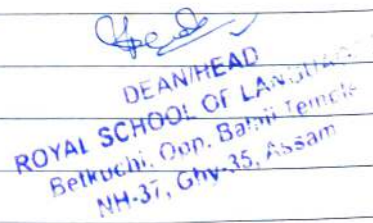 DEAN/HEAD
ROYAL SCHOOL OF
Betkuchi, Opp. Balaji Temple
NH-37, Ghy-35, Assam